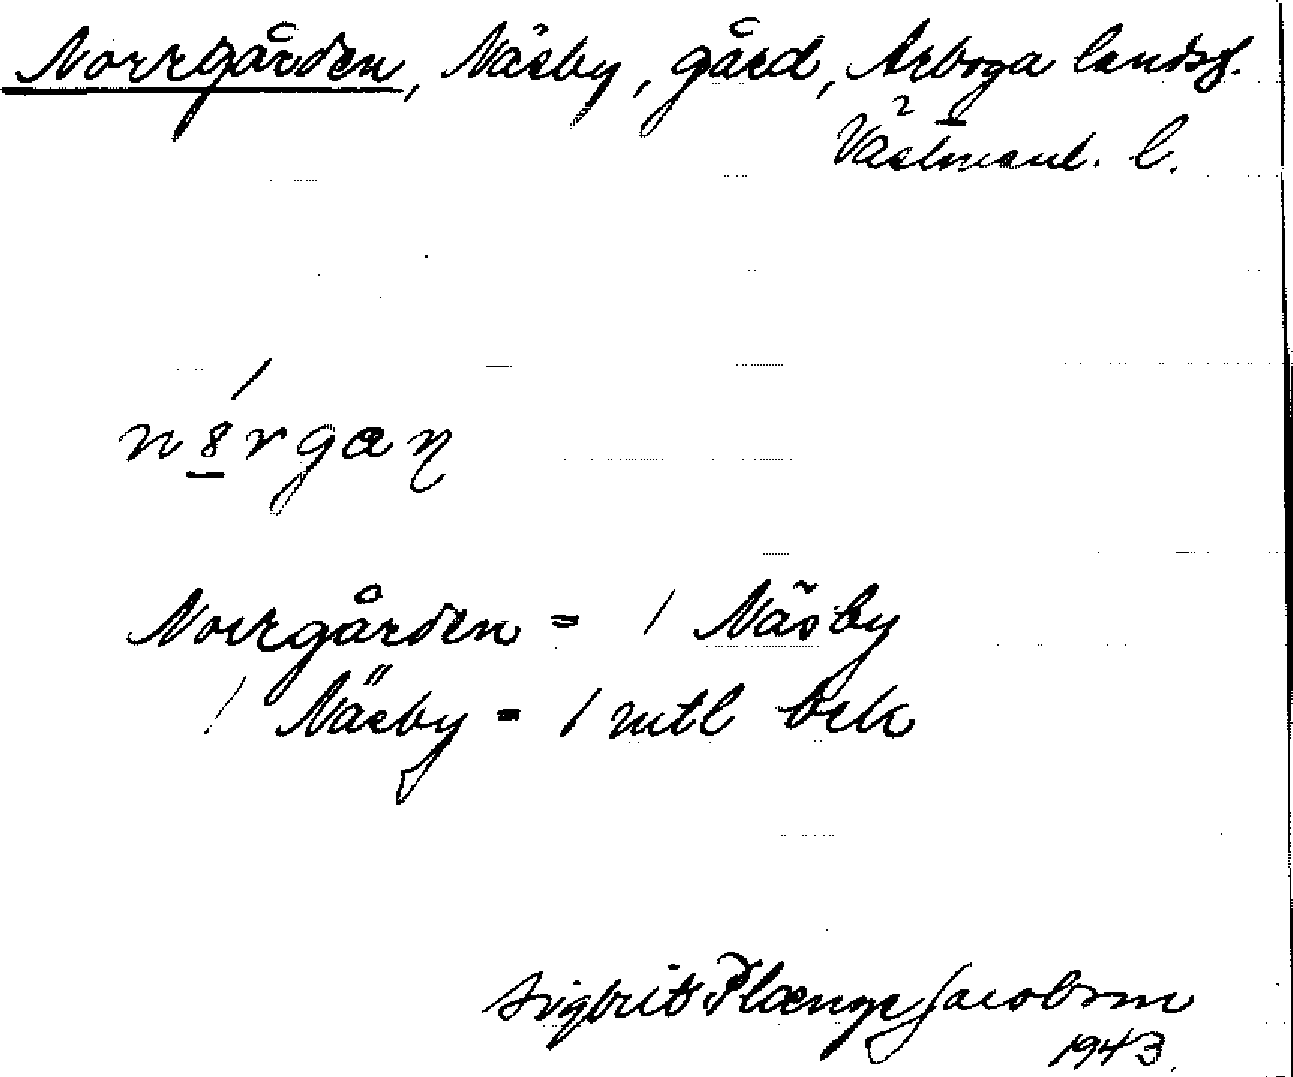 Norrgården, Näsby, gård, Arboga landsf.
Västmanl. l.
n8rgaɳ
Norrgården = 1 Näsby
1 Näsby = 1 mtl
Sigbrit Plænge Jacobson
1943.